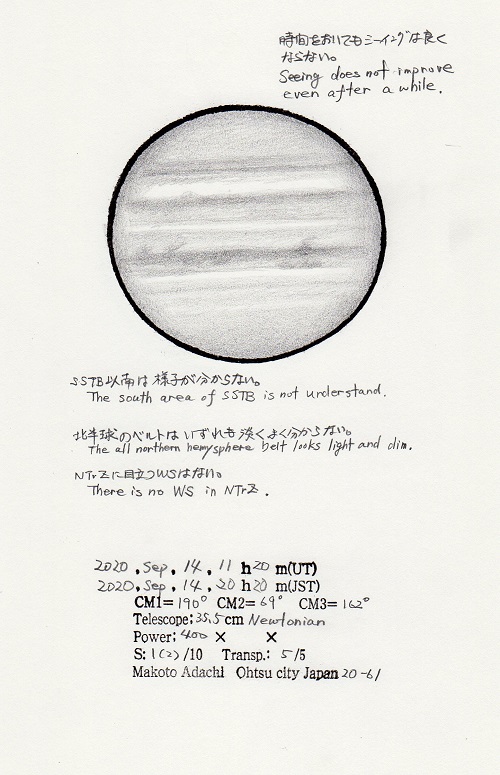 時間をおいてもシーイングは良く
ならない。
Seeing does not improve
even after a while.
SSTB以南は様子が分からない。
The south area of SSTB is not understand.
北半球のベルトはいずれも淡くよく分からない。
The all northern hemysphere belt looks light and dim.
NTrZに目立つWSはない。
There is no WS in NTrZ.
2020, Sep, 14, 11 h 20 m(UT)
2020, Sep, 14, 20 h 20 m(JST)
CM1= 190° CM2= 69° CM3= 162°
Telescope: 35.5 cm Newtonian
Power: 400 × ×
S: 1(2) /10 Transp.: 5/5
Makoto Adachi Ohtsu city Japan 20-61